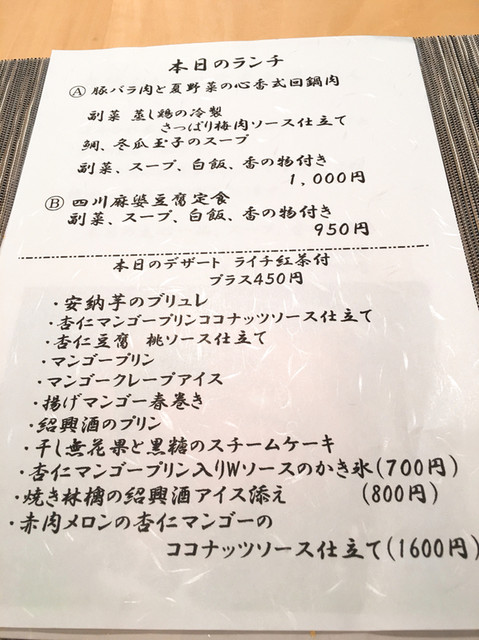 本日のランチ
Ⓐ 豚バラ肉と夏野菜の心香式回鍋肉
副菜 蒸し鶏の冷製
さっぱり梅肉ソース仕立て
鯛、冬瓜玉子のスープ
副菜、スープ、白飯、香の物付き
1,000円
Ⓑ 四川麻婆豆腐定食
副菜、スープ、白飯、香の物付き
950円
本日のデザート ライチ紅茶付
プラス450円
・安納芋のブリュレ
・杏仁マンゴープリンココナッツソース仕立て
・杏仁豆腐 桃ソース仕立て
・マンゴープリン
・マンゴークレープアイス
・揚げマンゴー春巻き
・紹興酒のプリン
・干し無花果と黒糖のスチームケーキ
・杏仁マンゴープリン入りWソースのかき氷(700円)
・焼き林檎の紹興酒アイス添え (800円)
・赤肉メロンの杏仁マンゴーの
ココナッツソース仕立て(1600円)